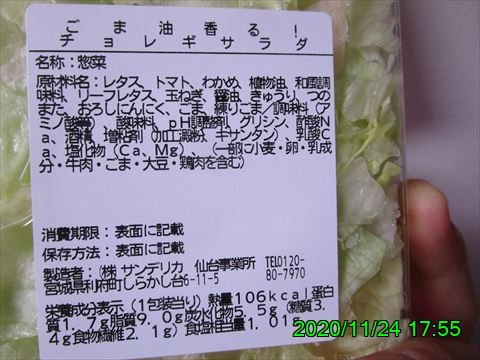 ごま油香る！
チョレギサラダ
名称：惣菜
原材料名：レタス、トマト、わかめ、植物油、和風調
味料、リーフレタス、玉ねぎ、醤油、きゅうり、つのま
また、おろしにんにく、ごま、練りごま／調味料（ア
ミノ酸等）、酸味料、pH調整剤、グリシン、酢酸N
a、酒精、増粘剤（加工澱粉、キサンタン）、乳酸C
a、塩化物（Ca、Mg）、（一部に小麦・卵・乳成
分・牛肉・ごま・大豆・鶏肉を含む）
消費期限：表面に記載
保存方法：表面に記載
製造者：（株）サンデリカ 仙台事業所 TEL0120-
宮城県利府町しらかし台6-11-5 80-7970
栄養成分表示（1包装当り）熱量106kcal蛋白
質1.7g脂質9.0g炭水化物5.5g（糖質3.
4g食物繊維2.1g）食塩相当量1.01g
2020/11/24 17:55